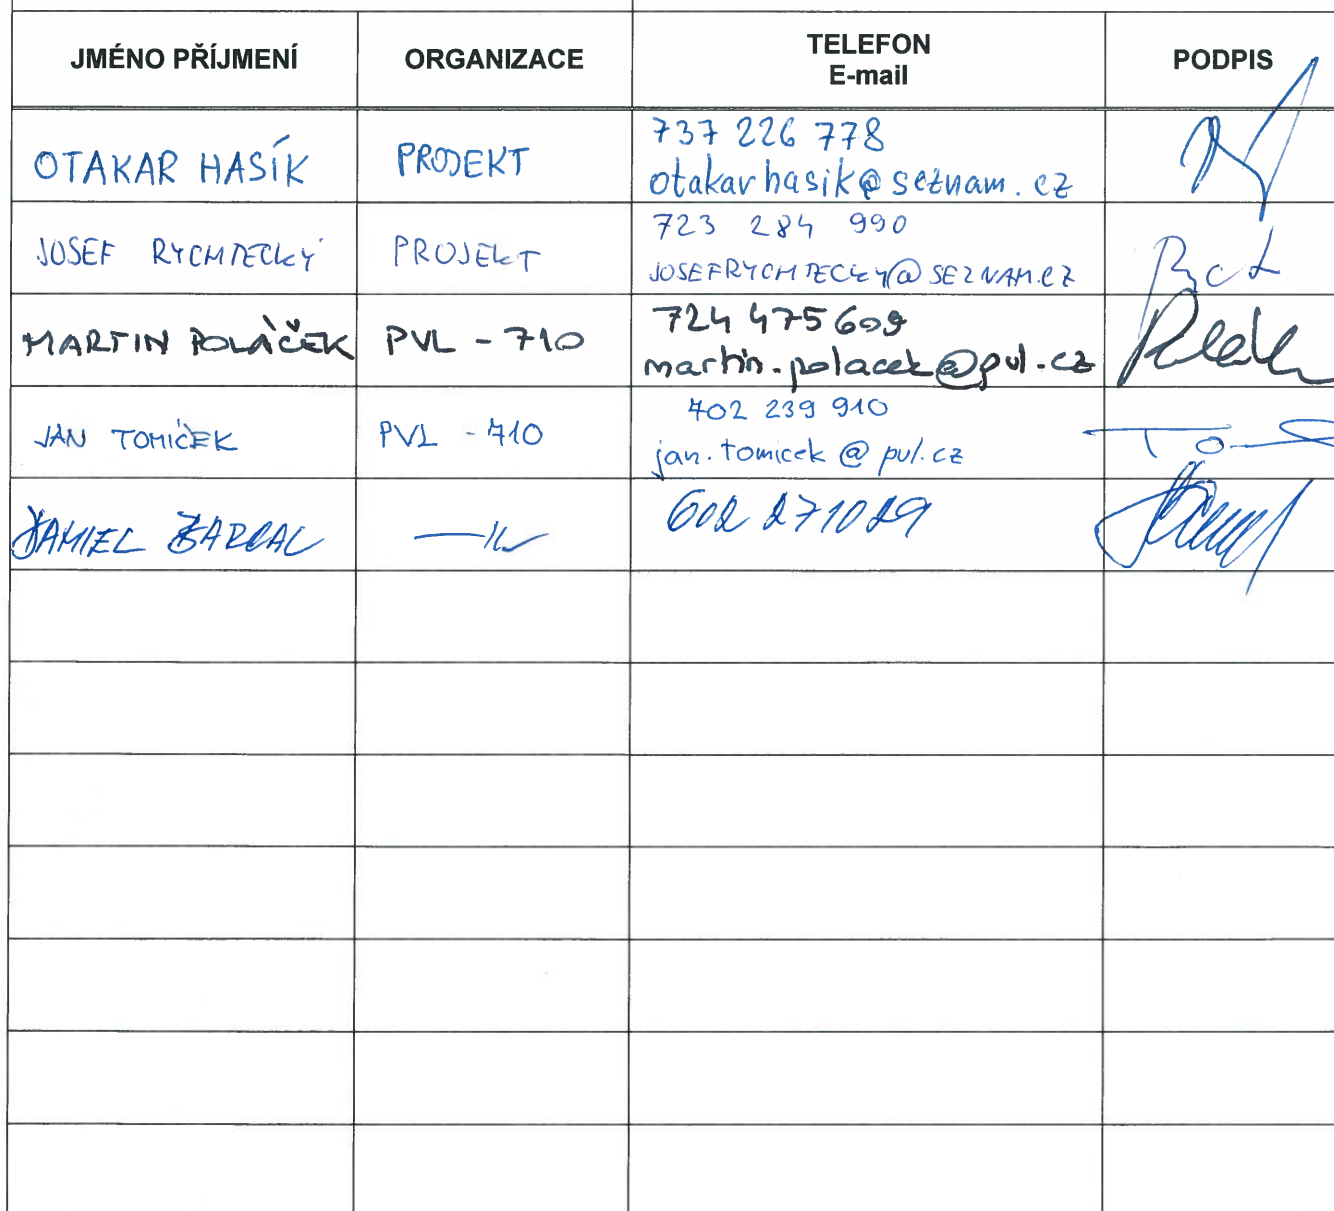 JMÉNO PŘÍJMENÍ ORGANIZACE TELEFON E-mail PODPIS
OTAKAR HASÍK PROJEKT 737 226 778
otakarhasik@seznam.cz
JOSEF RYCHTECKÝ PROJEKT 723 284 990
JOSEFRYCHTECKY@SEZNAM.CZ
MARTIN POLÁČEK PVL - 710 724 475 609
martin.polacek@pvl.cz
JAN TOMÍČEK PVL - 710 702 239 910
jan.tomicek@pvl.cz
602 271029